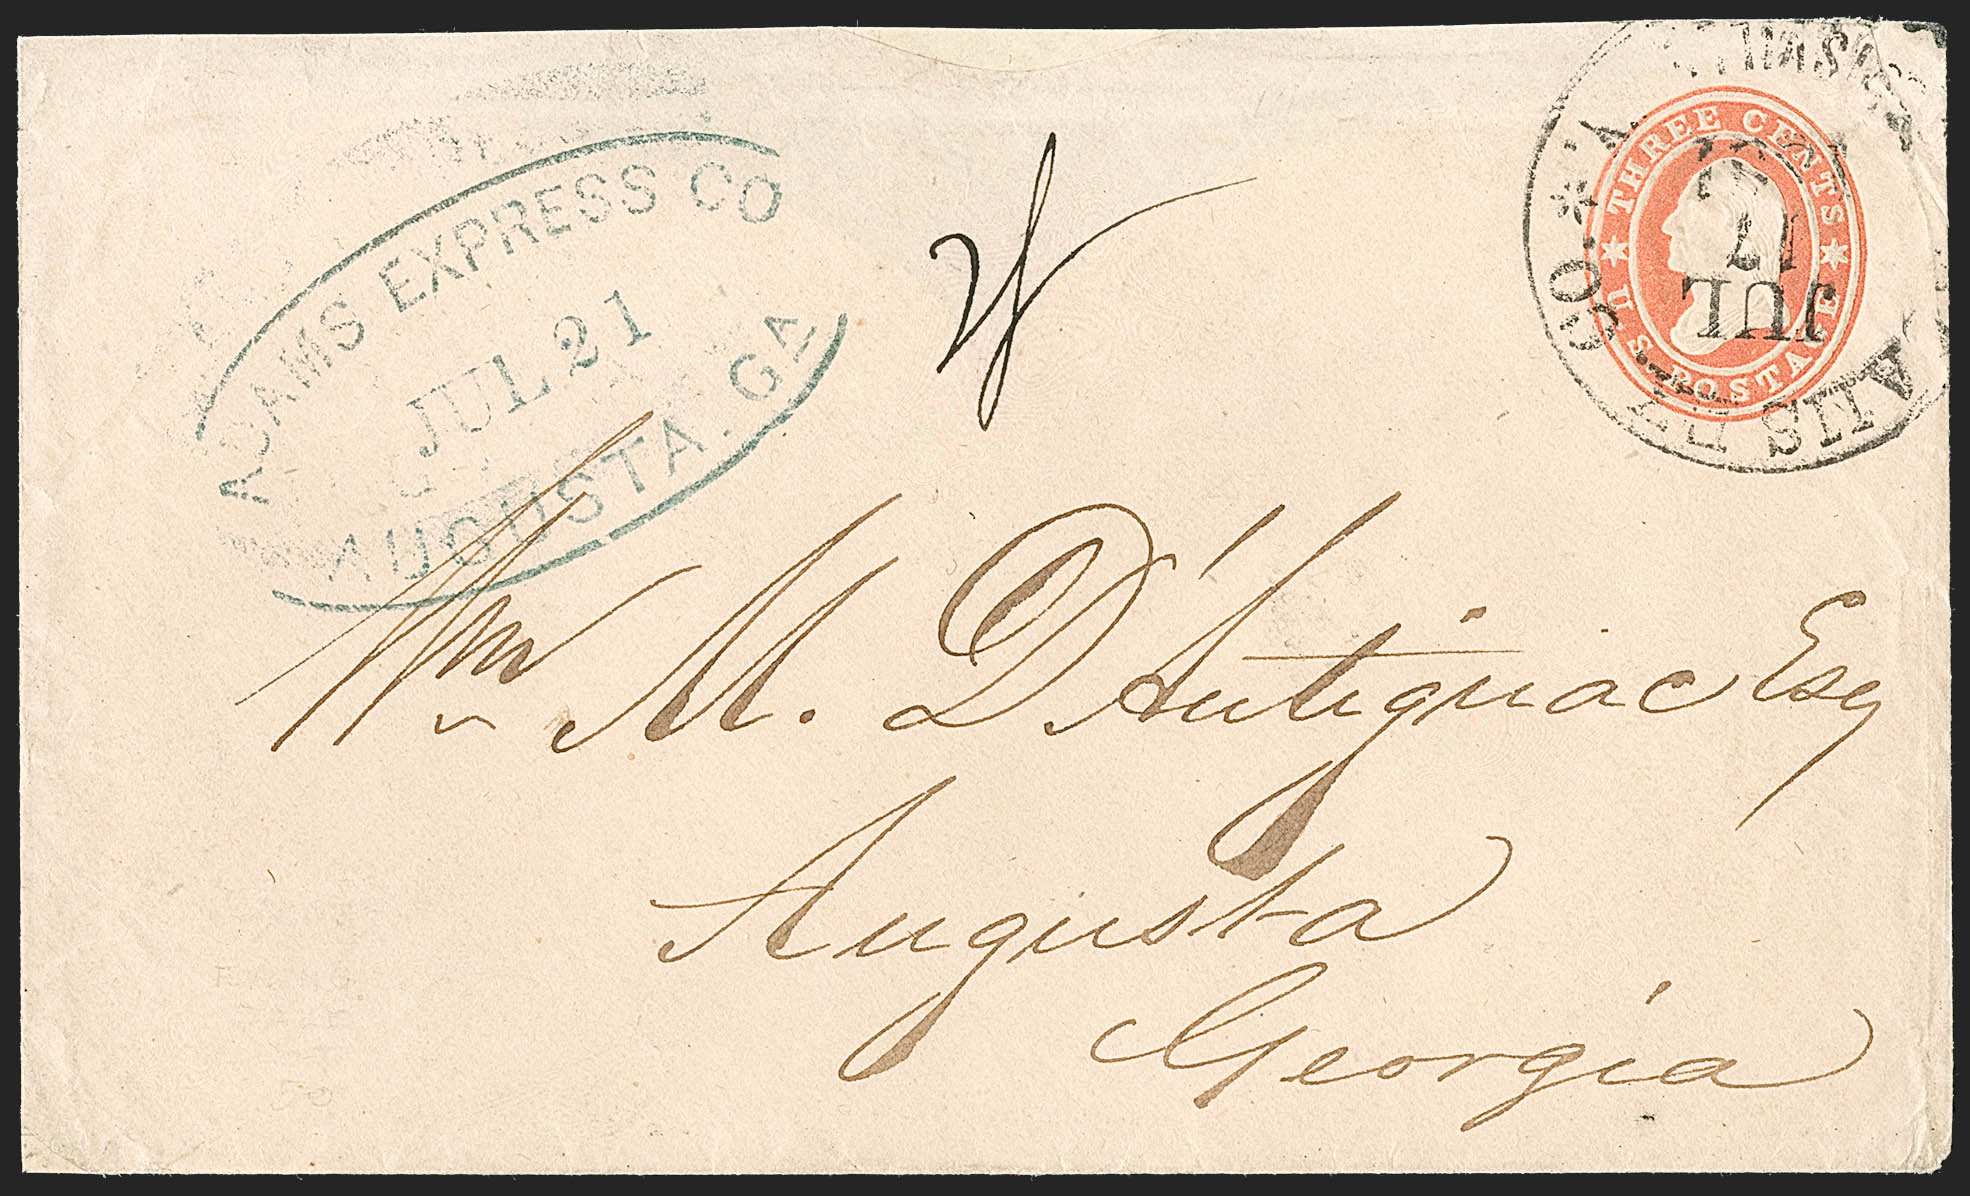 ADAMS EXPRESS CO
JUL 21
AUGUSTA. GA
THREE CENTS
U. S. POSTAGE
JUL
17
CO.
Wm M. D'Antignac Esq
Augusta
Georgia